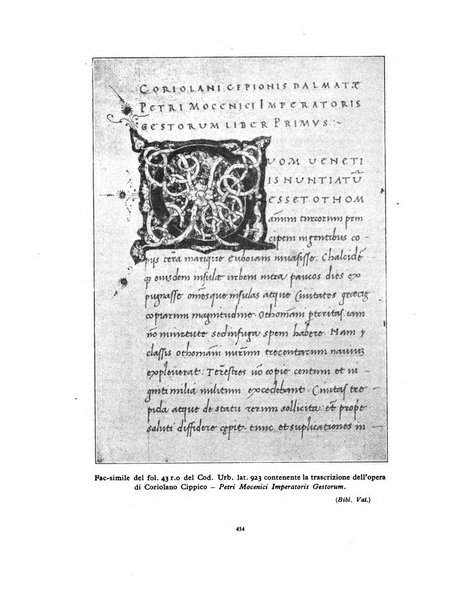 CORIOLANI CEPIONIS DALMATÆ
PETRI MOCENICI IMPERATORIS
GESTORUM LIBER PRIMUS·
QUOM VENETI
IS NUNTIATŪ
ESSET OTHOM
anum turcorum prin
cipem ingentibus co
pijs terra marique Euboiam inuasisse. Chalcidē
q eiusdem insulæ urbem intra paucos dies ex
pugnasse omesque insulas atque Ciuitates
copiarum magnitudine Othomani
nō in uirtute sed in fuga spem habere. Nam
classis othomani nauium trecentarum nauiū
expleuerat. Terrestres uō copie centum et ui
ginti milia militum excedebant. Ciuitas tre
pida atque de statu rerum sollicita et prope
saluti diffidere cepit. nunc et suplicationibus in
Fac-simile del fol. 43 r.o del Cod. Urb. lat. 923 contenente la trascrizione dell'opera
di Coriolano Cippico – Petri Mocenici Imperatoris Gestorum.
(Bibl. Vat.)
434